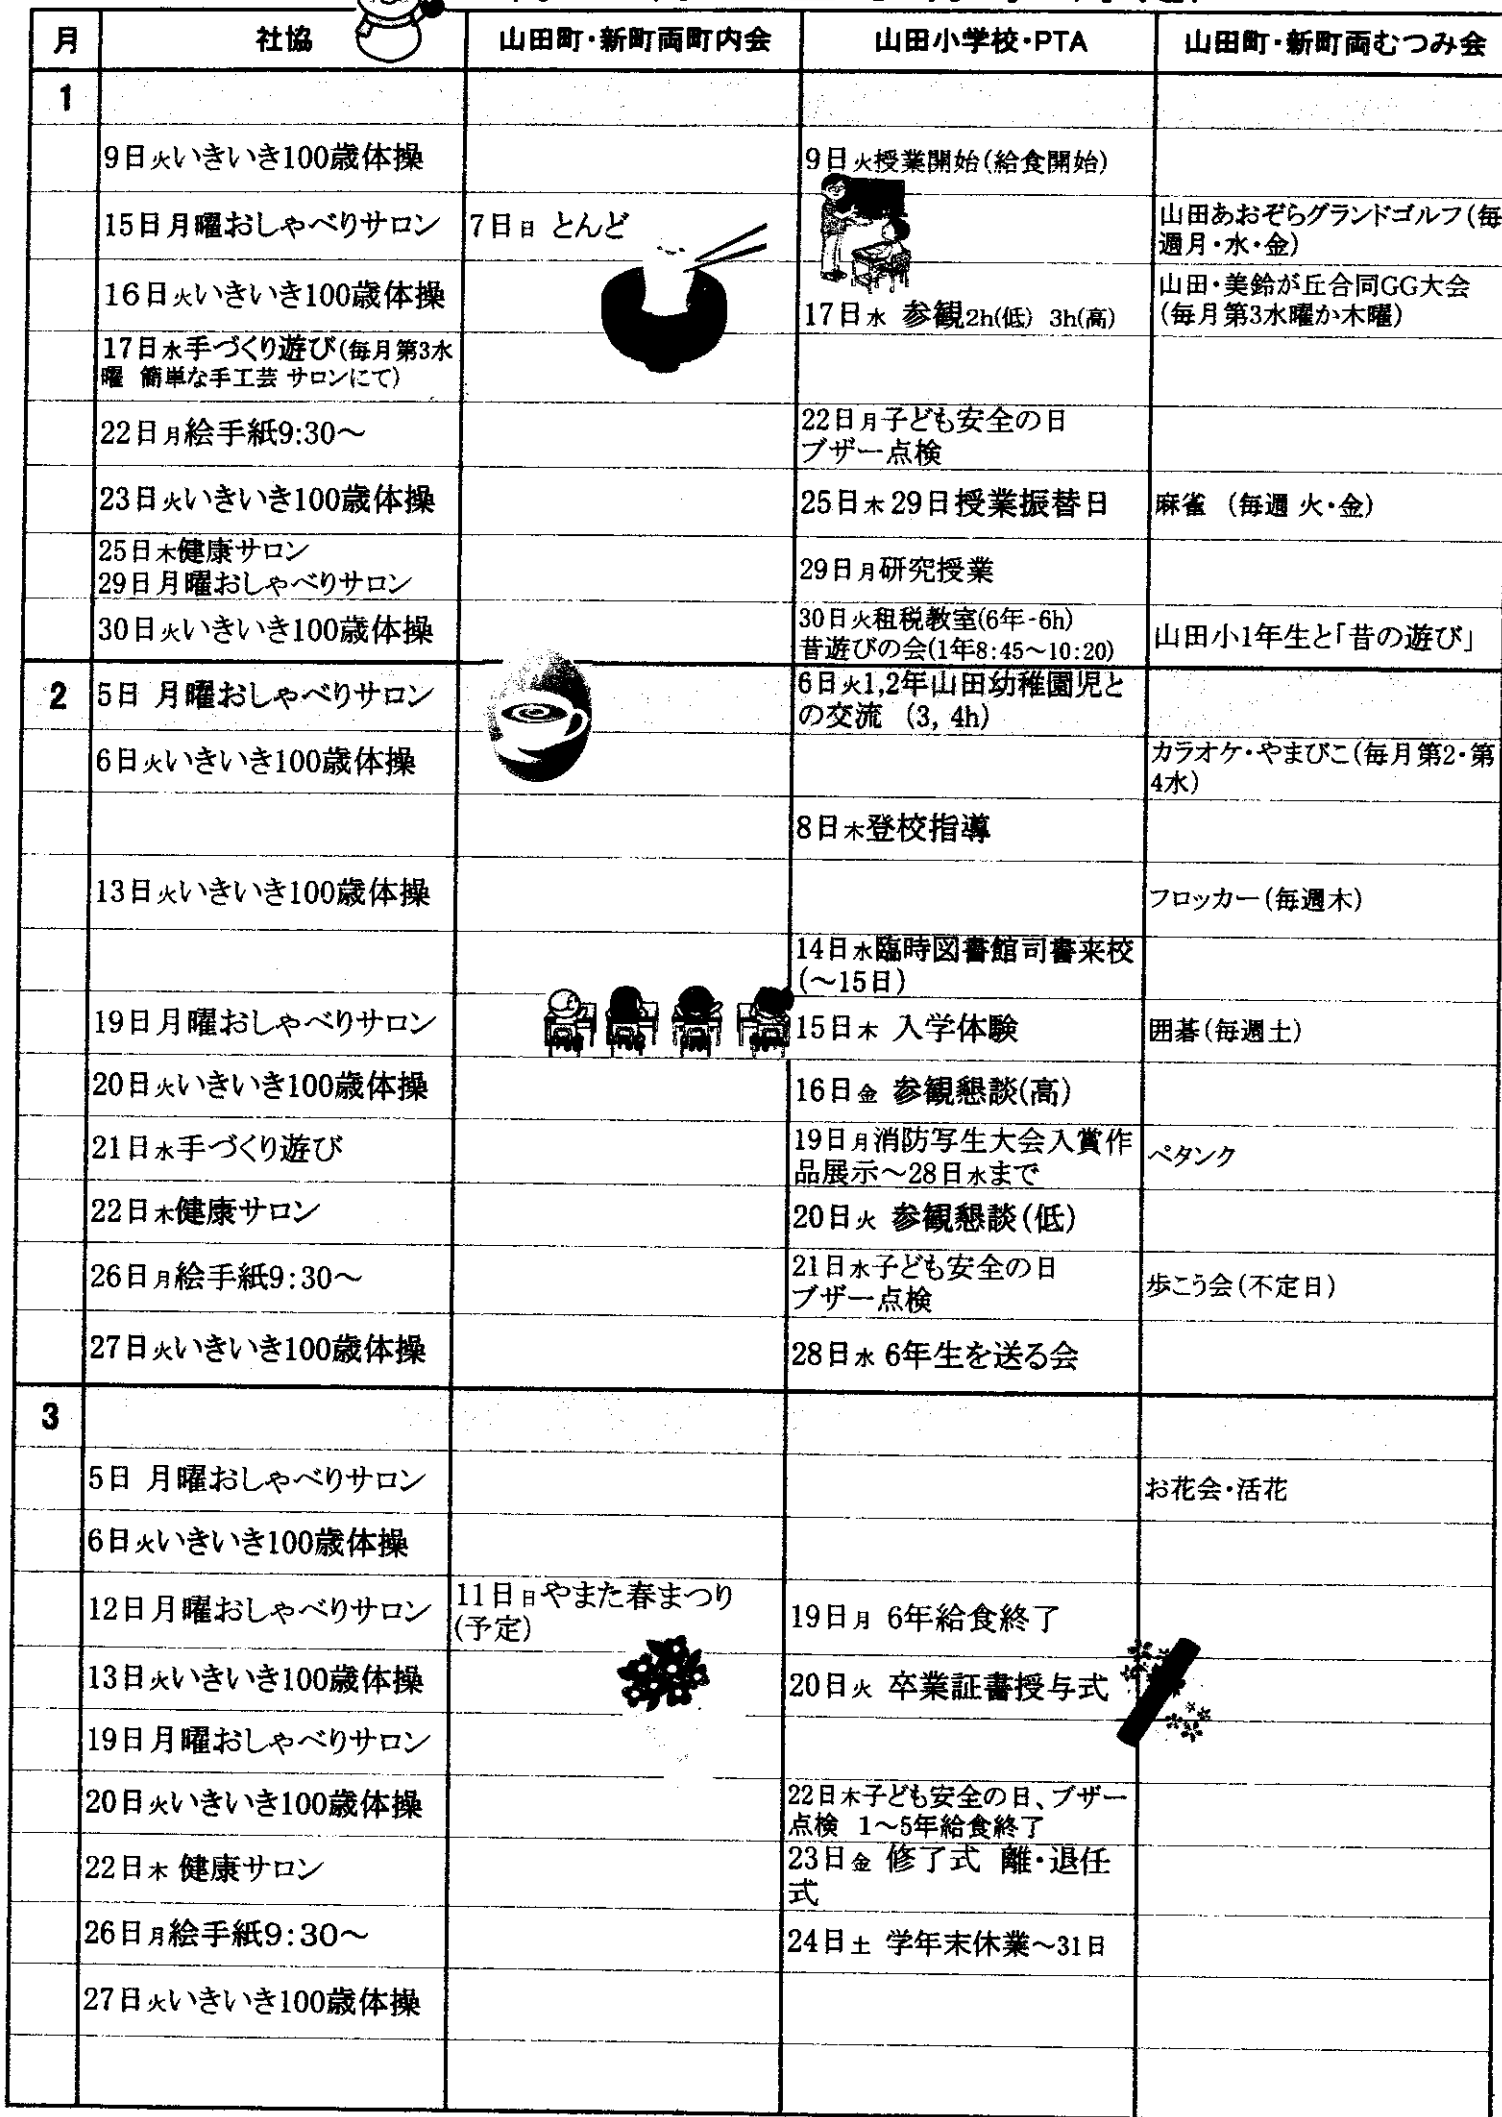 月 社協 山田町・新町両町内会 山田小学校・PTA 山田町・新町両むつみ会
1
9日火いきいき100歳体操 9日火授業開始(給食開始)
15日月曜おしゃべりサロン 7日日 とんど 山田あおぞらグランドゴルフ(毎
週月・水・金)
16日火いきいき100歳体操 17日水 参観2h(低) 3h(高) 山田・美鈴が丘合同GG大会
(毎月第3水曜か木曜)
17日水手づくり遊び(毎月第3水
曜 簡単な手工芸 サロンにて)
22日月絵手紙9:30～ 22日月子ども安全の日
ブザー点検
23日火いきいき100歳体操 25日木29日授業振替日 麻雀 (毎週 火・金)
25日木健康サロン
29日月曜おしゃべりサロン 29日月研究授業
30日火いきいき100歳体操 30日火租税教室(6年-6h)
昔遊びの会(1年8:45～10:20) 山田小1年生と「昔の遊び」
2 5日 月曜おしゃべりサロン 6日火1,2年山田幼稚園児と
の交流 (3, 4h)
6日火いきいき100歳体操 カラオケ・やまびこ(毎月第2・第
4水)
8日木登校指導
13日火いきいき100歳体操 フロッカー(毎週木)
14日水臨時図書館司書来校
(～15日)
19日月曜おしゃべりサロン 15日木 入学体験 囲碁(毎週土)
20日火いきいき100歳体操 16日金 参観懇談(高)
21日水手づくり遊び 19日月消防写生大会入賞作
品展示～28日水まで ペタンク
22日木健康サロン 20日火 参観懇談(低)
26日月絵手紙9:30～ 21日水子ども安全の日
ブザー点検 歩こう会(不定日)
27日火いきいき100歳体操 28日水 6年生を送る会
3
5日 月曜おしゃべりサロン お花会・活花
6日火いきいき100歳体操
12日月曜おしゃべりサロン 11日日やまた春まつり
(予定) 19日月 6年給食終了
13日火いきいき100歳体操 20日火 卒業証書授与式
19日月曜おしゃべりサロン
20日火いきいき100歳体操 22日木子ども安全の日、ブザー
点検 1～5年給食終了
22日木 健康サロン 23日金 修了式 離・退任
式
26日月絵手紙9:30～ 24日土 学年末休業～31日
27日火いきいき100歳体操